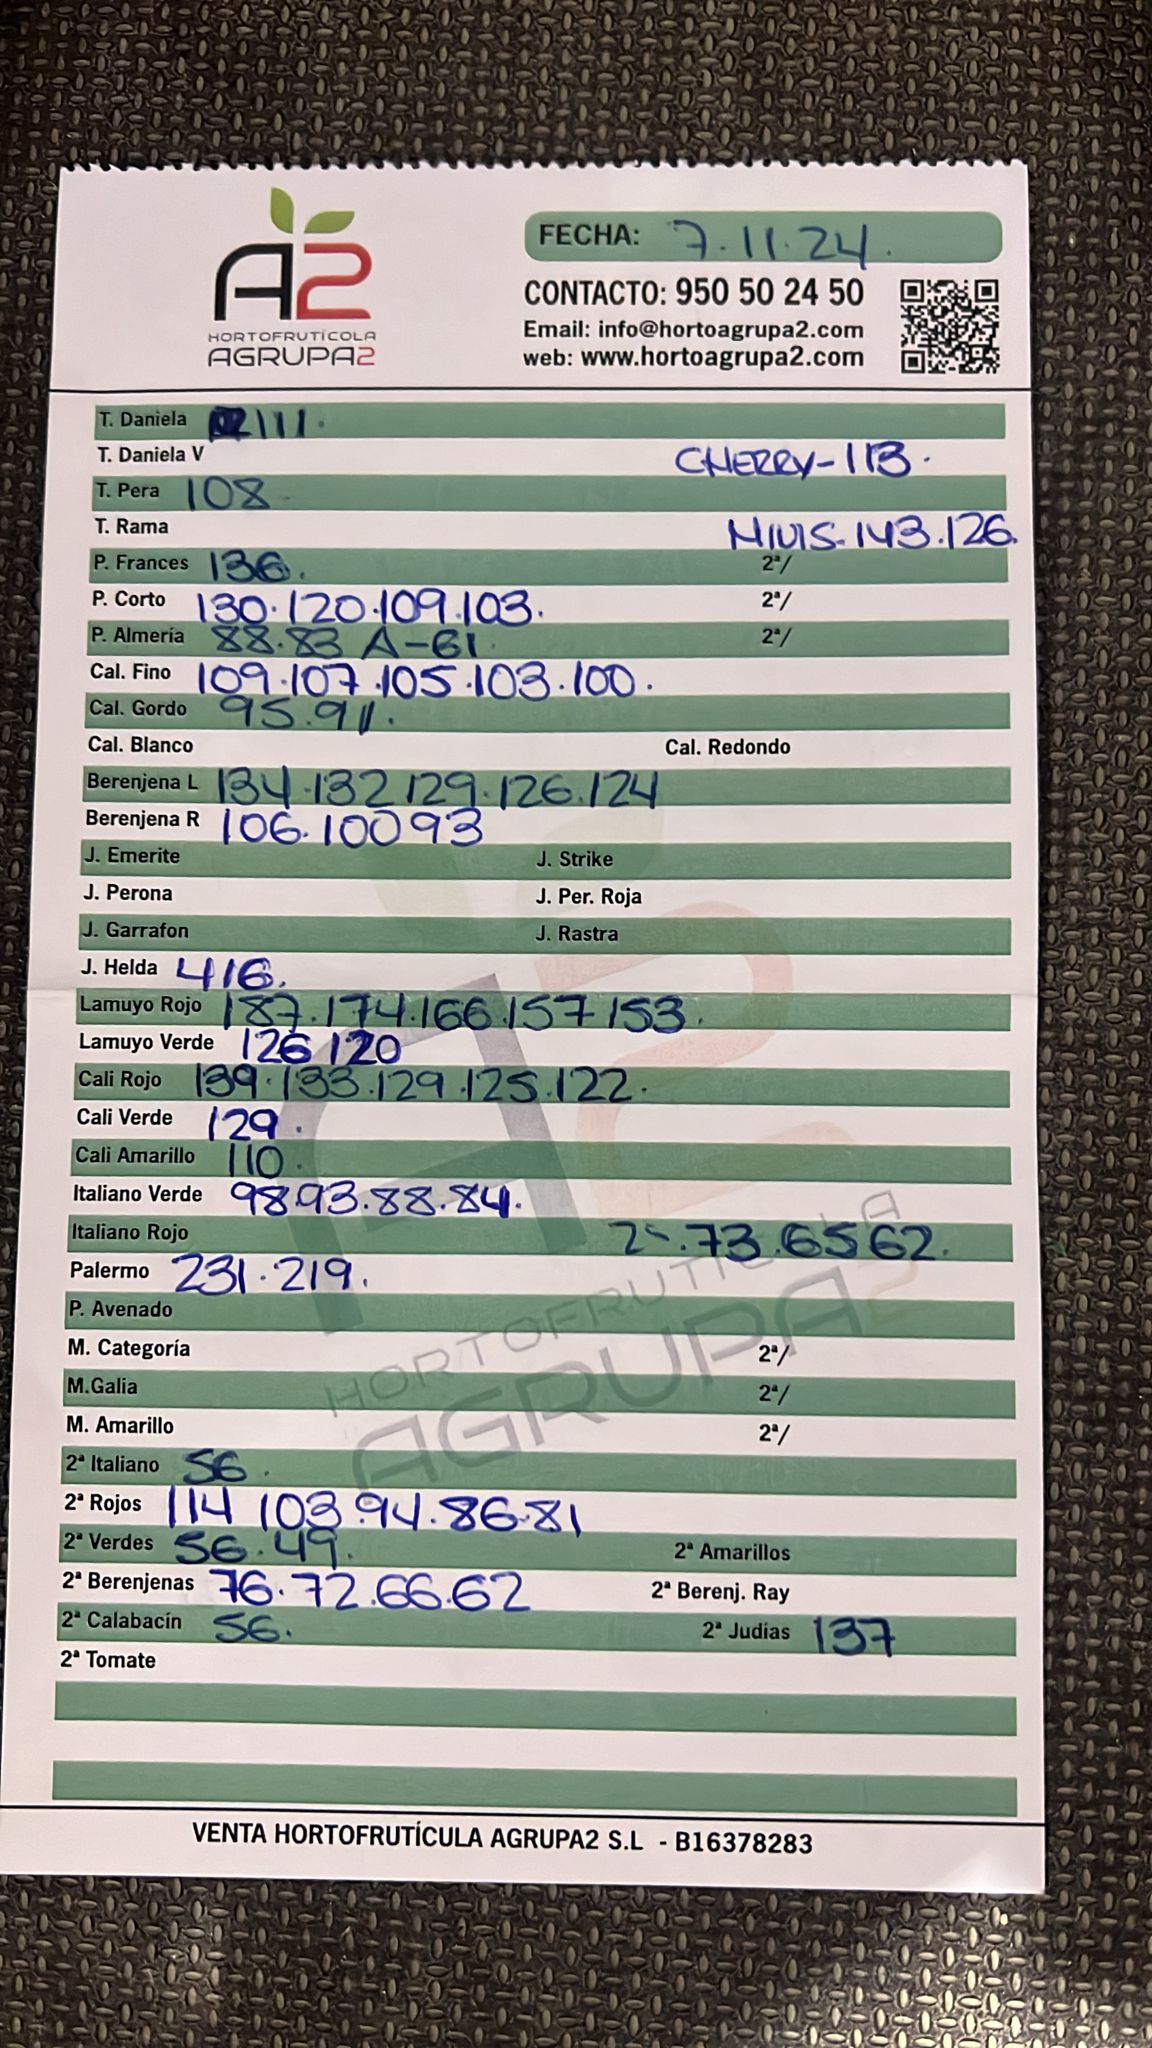 A2
HORTOFRUTÍCOLA
AGRUPA2
FECHA: 7.11.24.
CONTACTO: 950 50 24 50
Email: info@hortoagrupa2.com
web: www.hortoagrupa2.com
T. Daniela 111.
T. Daniela V CHERRY-113.
T. Pera 108
T. Rama MIUIS.143.126.
P. Frances 136. 2ª/
P. Corto 130.120.109.103. 2ª/
P. Almería 88.83 A-61. 2ª/
Cal. Fino 109.107.105.103.100.
Cal. Gordo 95.91.
Cal. Blanco Cal. Redondo
Berenjena L 134.132 129.126.124
Berenjena R 106.100 93
J. Emerite J. Strike
J. Perona J. Per. Roja
J. Garrafon J. Rastra
J. Helda 416.
Lamuyo Rojo 187.174.166.157 153.
Lamuyo Verde 126 120
Cali Rojo 139.133.129.125.122.
Cali Verde 129.
Cali Amarillo 110.
Italiano Verde 98.93.88.84.
Italiano Rojo .73.65 62.
Palermo 231.219.
P. Avenado
M. Categoría 2ª/
M.Galia 2ª/
M. Amarillo 2ª/
2ª Italiano 56.
2ª Rojos 114 103.94.86.81
2ª Verdes 56.49. 2ª Amarillos
2ª Berenjenas 76.72.66.62 2ª Berenj. Ray
2ª Calabacín 56. 2ª Judías 137
2ª Tomate
HORTOFRUTÍCOLA
AGRUPA2
VENTA HORTOFRUTÍCULA AGRUPA2 S.L - B16378283